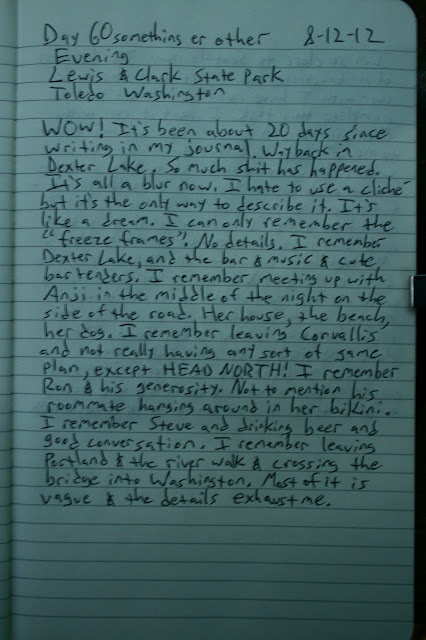 Day 60 somethings er other 8-12-12
Evening
Lewis & Clark State Park
Toledo Washington
WOW! It's been about 20 days since
writing in my journal. Way back in
Dexter Lake. So much shit has happened.
It's all a blur now. I hate to use a cliché
but it's the only way to describe it. It's
like a dream. I can only remember the
"freeze frames". No details. I remember
Dexter Lake, and the bar & music & cute
bartenders. I remember meeting up with
Anji in the middle of the night on the
side of the road. Her house, the beach,
her dog. I remember leaving Corvallis
and not really having any sort of game
plan, except HEAD NORTH! I remember
Ron & his generosity. Not to mention his
roommate hanging around in her bikini.
I remember Steve and drinking beer and
good conversation. I remember leaving
Portland & the river walk & crossing the
bridge into Washington. Most of it is
vague & the details exhaust me.